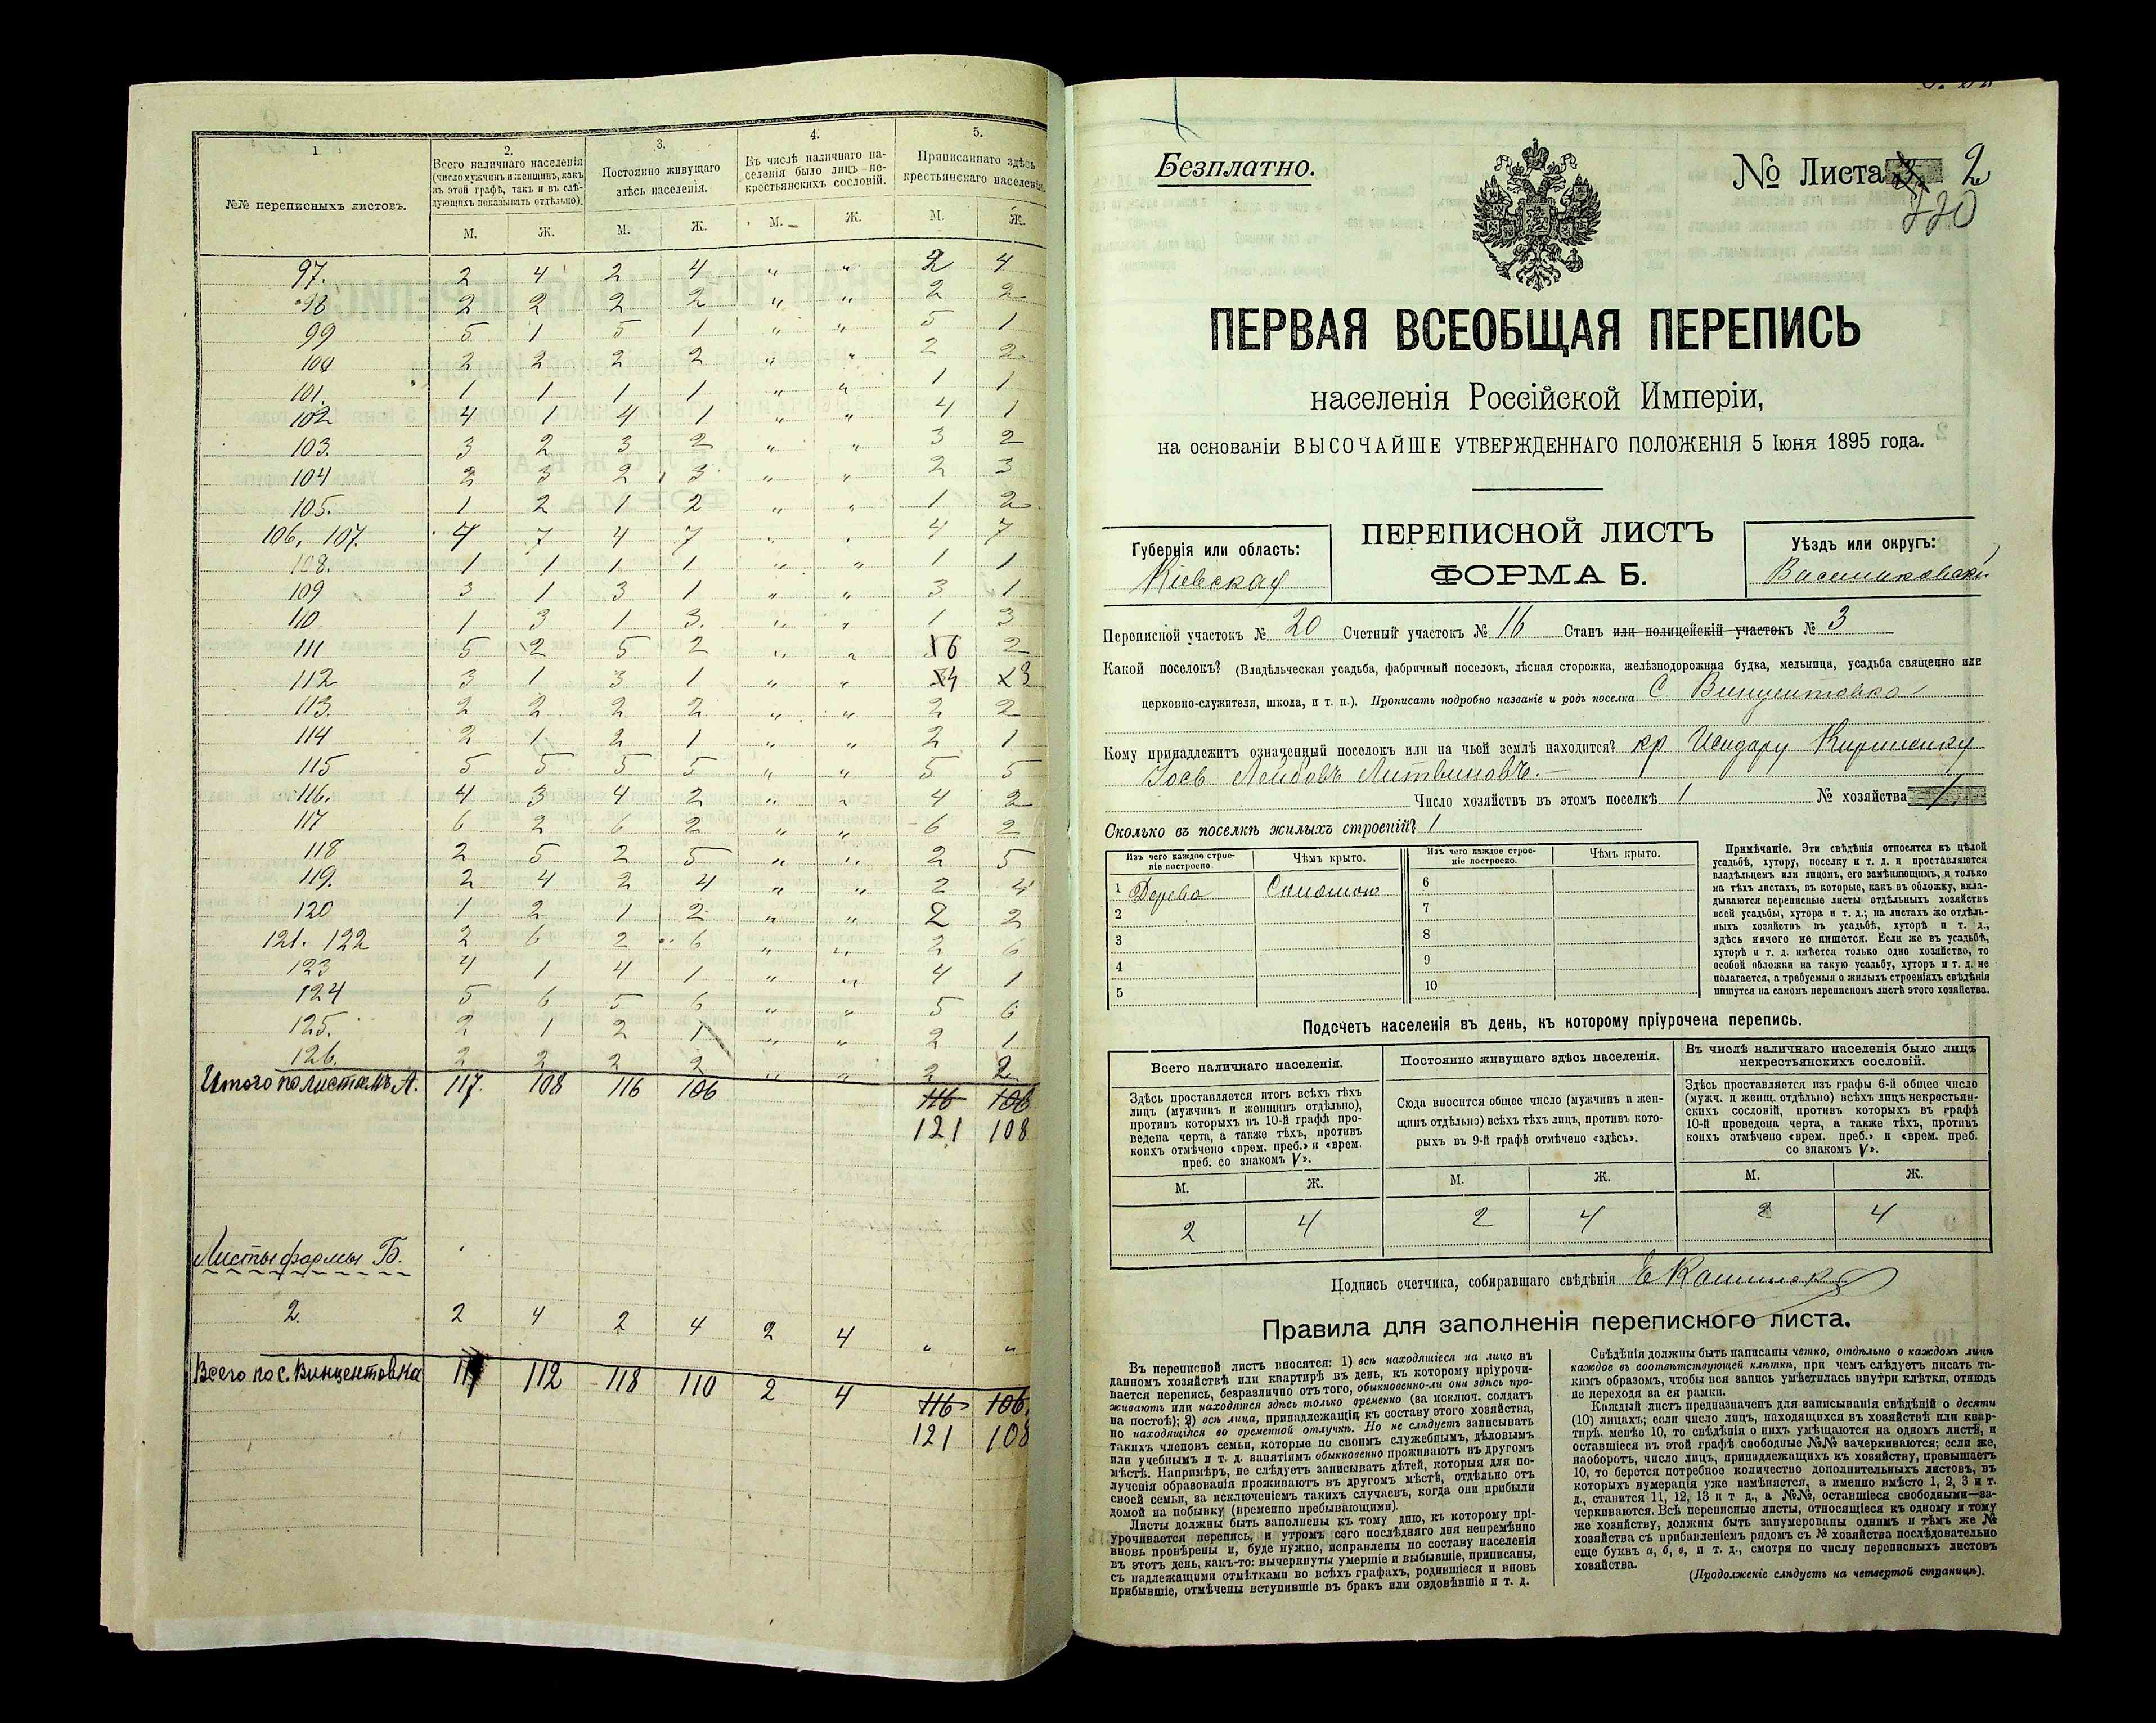 1
2.
3.
4.
5.
№№ переписныхъ листовъ.
Всего наличнаго населенія
(число мужчинъ и женщинъ, какъ
въ этой графѣ, такъ и въ слѣ-
дующихъ показывать отдѣльно).
Постоянно живущаго
здѣсь населенія.
Въ числѣ наличнаго на-
селенія было лицъ не-
крестьянскихъ сословій.
Приписаннаго здѣсь
крестьянскаго населенія
М. Ж. М. Ж. М. Ж. М. Ж.
97. 2 4 2 4 " " 2 4
98 2 2 2 2 " " 2 2
99 5 1 5 1 " " 5 1
100 2 2 2 2 " " 2 2
101. 1 1 1 1 " " 1 1
102 4 1 4 1 " " 4 1
103. 3 2 3 2 " " 3 2
104 2 3 2 3 " " 2 3
105. 1 2 1 2 " " 1 2
106, 107. 4 7 4 7 " " 4 7
108. 1 1 1 1 " " 1 1
109 3 1 3 1 " " 3 1
110 1 3 1 3. " " 1 3
111 5 2 5 2 " " 6 2
112 3 1 3 1 " " 4 3
113. 2 2 2 2 " " 2 2
114 2 1 2 1 " " 2 1
115 5 5 5 5 " " 5 5
116. 4 3 4 2 " " 4 2
117 6 2 6 2 " " 6 2
118 2 5 2 5 " " 2 5
119. 2 4 2 4 " " 2 4
120 1 2 1 2 " " 2 2
121. 122 2 6 2 6 " " 2 6
123 4 1 4 1 " " 4 1
124 5 6 5 6 " " 5 6
125. 2 1 2 1 " " 2 1
126. 2 2 2 2 " " 2 2
Итого по листамъ А. 117. 108 116 106 116 106
121 108
Листы формы Б.
2. 2 4 2 4 2 4 " "
Всего по с. Винцентовка 112 118 110 2 4 116 106.
121 108
Безплатно.
№ Листа 2
220
ПЕРВАЯ ВСЕОБЩАЯ ПЕРЕПИСЬ
населенія Россійской Имперіи,
на основаніи ВЫСОЧАЙШЕ УТВЕРЖДЕННАГО ПОЛОЖЕНІЯ 5 Іюня 1895 года.
Губернія или область:
Кіевская
ПЕРЕПИСНОЙ ЛИСТЪ
ФОРМА Б.
Уѣздъ или округъ:
Васильковскій
Переписной участокъ № 20 Счетный участокъ № 16 Станъ или полицейскій участокъ № 3
Какой поселокъ? (Владѣльческая усадьба, фабричный поселокъ, лѣсная сторожка, желѣзнодорожная будка, мельница, усадьба священно или
церковно-служителя, школа, и т. п.). Прописать подробно названіе и родъ поселка С Винцентовка
Кому принадлежитъ означенный поселокъ или на чьей землѣ находится? кр Исидору
Іось Лейбовъ Литвиновъ.
Число хозяйствъ въ этомъ поселкѣ 1 № хозяйства 1
Сколько въ поселкѣ жилыхъ строеній? 1
Изъ чего каждое строе-
ніе построено.
Чѣмъ крыто.
Изъ чего каждое строе-
ніе построено.
Чѣмъ крыто.
1 Дерево Соломою 6
2 7
3 8
4 9
5 10
Примѣчаніе. Эти свѣдѣнія относятся къ цѣлой
усадьбѣ, хутору, поселку и т. д. и проставляются
владѣльцемъ или лицомъ, его замѣняющимъ, и только
на тѣхъ листахъ, въ которые, какъ въ обложку, вкла-
дываются переписные листы отдѣльныхъ хозяйствъ
всей усадьбы, хутора и т. д.; на листахъ же отдѣль-
ныхъ хозяйствъ въ усадьбѣ, хуторѣ и т. д.,
здѣсь ничего не пишется. Если же въ усадьбѣ,
хуторѣ и т. д. имѣется только одно хозяйство, то
особой обложки на такую усадьбу, хуторъ и т. д. не
полагается, а требуемыя о жилыхъ строеніяхъ свѣдѣнія
пишутся на самомъ переписномъ листѣ этого хозяйства.
Подсчетъ населенія въ день, къ которому пріурочена перепись.
Всего наличнаго населенія.
Здѣсь проставляется итогъ всѣхъ тѣхъ
лицъ (мужчинъ и женщинъ отдѣльно),
противъ которыхъ въ 10-й графѣ про-
ведена черта, а также тѣхъ, противъ
коихъ отмѣчено «врем. преб.» и «врем.
преб. со знакомъ V».
Постоянно живущаго здѣсь населенія.
Сюда вносится общее число (мужчинъ и жен-
щинъ отдѣльно) всѣхъ тѣхъ лицъ, противъ кото-
рыхъ въ 9-й графѣ отмѣчено «здѣсь».
Въ числѣ наличнаго населенія было лицъ
некрестьянскихъ сословій.
Здѣсь проставляется изъ графы 6-й общее число
(мужч. и женщ. отдѣльно) всѣхъ лицъ некрестьян-
скихъ сословій, противъ которыхъ въ графѣ
10-й проведена черта, а также тѣхъ, противъ
коихъ отмѣчено «врем. преб.» и «врем. преб.
со знакомъ V».
М. Ж. М. Ж. М. Ж.
2 4 2 4 2 4
Подпись счетчика, собиравшаго свѣдѣнія
Правила для заполненія переписного листа.
Въ переписной листъ вносятся: 1) всѣ находящіеся на лицо въ
данномъ хозяйствѣ или квартирѣ въ день, къ которому пріурочи-
вается перепись, безразлично отъ того, обыкновенно-ли они здѣсь про-
живаютъ или находятся здѣсь только временно (за исключ. солдатъ
на постоѣ); 2) всѣ лица, принадлежащія къ составу этого хозяйства,
но находящіяся во временной отлучкѣ. Но не слѣдуетъ записывать
такихъ членовъ семьи, которые по своимъ служебнымъ, дѣловымъ
или учебнымъ и т. д. занятіямъ обыкновенно проживаютъ въ другомъ
мѣстѣ. Напримѣръ, не слѣдуетъ записывать дѣтей, которыя для по-
лученія образованія проживаютъ въ другомъ мѣстѣ, отдѣльно отъ
своей семьи, за исключеніемъ такихъ случаевъ, когда они прибыли
домой на побывку (временно пребывающими).
Листы должны быть заполнены къ тому дню, къ которому прі-
урочивается перепись, и утромъ сего послѣдняго дня непремѣнно
вновь провѣрены и, буде нужно, исправлены по составу населенія
въ этотъ день, какъ-то: вычеркнуты умершіе и выбывшіе, приписаны,
съ надлежащими отмѣтками во всѣхъ графахъ, родившіеся и вновь
прибывшіе, отмѣчены вступившіе въ бракъ или овдовѣвшіе и т. д.
Свѣдѣнія должны быть написаны четко, отдѣльно о каждомъ лицѣ
каждое въ соотвѣтствующей клѣткѣ, при чемъ слѣдуетъ писать та-
кимъ образомъ, чтобы вся запись умѣстилась внутри клѣтки, отнюдь
не переходя за ея рамки.
Каждый листъ предназначенъ для записыванія свѣдѣній о десяти
(10) лицахъ; если число лицъ, находящихся въ хозяйствѣ или квар-
тирѣ, менѣе 10, то свѣдѣнія о нихъ умѣщаются на одномъ листѣ, и
оставшіеся въ этой графѣ свободные №№ зачеркиваются; если же,
наоборотъ, число лицъ, принадлежащихъ къ хозяйству, превышаетъ
10, то берется потребное количество дополнительныхъ листовъ, въ
которыхъ нумерація уже измѣняется, а именно вмѣсто 1, 2, 3 и т.
д., ставится 11, 12, 13 и т д., а №№, оставшіеся свободными—за-
черкиваются. Всѣ переписные листы, относящіеся къ одному и тому
же хозяйству, должны быть занумерованы однимъ и тѣмъ же №
хозяйства съ прибавленіемъ рядомъ съ № хозяйства послѣдовательно
еще буквъ а, б, в, и т. д., смотря по числу переписныхъ листовъ
хозяйства.
(Продолженіе слѣдуетъ на четвертой страницѣ).